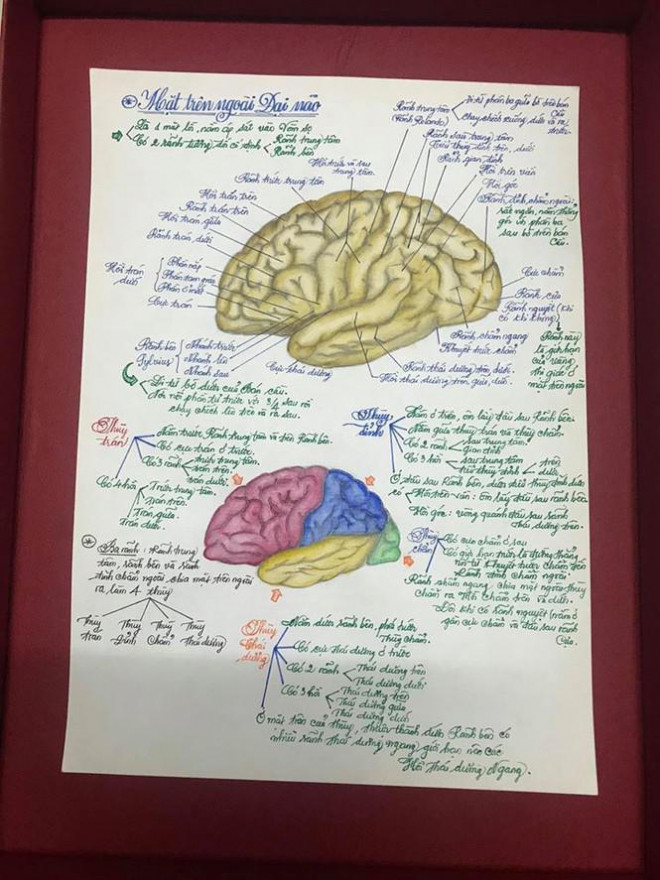 Mặt trên ngoài Đại não
Là 1 mặt lồi, nằm áp sát vào Vòm sọ
Có 2 rãnh tương đối cố định
Rãnh trung tâm
Rãnh bên
Rãnh trung tâm
(Rãnh Rolando)
Rãnh sau trung tâm
Tiểu thùy đỉnh trên, dưới
Rãnh gian đỉnh
Hồi trên viền
Hồi góc
Rãnh đỉnh chẩm ngoài
rất ngắn, nằm thẳng
góc với phần ba
sau bờ trên bán
cầu.
Hồi trước và sau
trung tâm
Rãnh trước trung tâm
Hồi trán trên
Rãnh trán trên
Hồi trán giữa
Rãnh trán dưới
Hồi trán
dưới
Phần nắp
Phần tam giác
Phần ổ mắt
Cực trán
Cực chẩm
Rãnh cựa
Rãnh nguyệt (khi
có khi không)
Rãnh này
là giới hạn
của vùng
thị giác ở
mặt trên ngoài
Rãnh chẩm ngang
Khuyết trước chẩm
Rãnh thái dương trên, dưới.
Hồi thái dương trên, giữa, dưới.
Cực thái dương
Rãnh bên
Sylvius
Nhánh trước
Nhánh lên
Nhánh sau
Đi từ bờ dưới của bán cầu.
Tới nối phần tư trước với 3/4 sau rồi
chạy chếch lên trên và ra sau.
Thùy
trán
Nằm trước Rãnh trung tâm và trên Rãnh bên.
Có cực trán ở trước.
Có 3 rãnh
trước trung tâm.
trán trên.
trán dưới.
Có 4 hồi
Trước trung tâm.
Trán trên.
Trán giữa.
Trán dưới.
Thùy
đỉnh
Nằm giữa thùy trán và thùy chẩm.
Có 2 rãnh
sau trung tâm.
gian đỉnh
Có 3 hồi
sau trung tâm
tiểu thùy đỉnh
trên
dưới
Ở đầu sau Rãnh bên, dưới tiểu thùy đỉnh dưới
có
Hồi trên viền: ôm lấy đầu sau rãnh bên.
Hồi góc: vòng quanh đầu sau rãnh
thái dương trên.
Thùy
chẩm
Có cực chẩm ở sau
Có giới hạn trước là đường thẳng
nối từ Khuyết trước chẩm đến
Rãnh đỉnh chẩm ngoài
Rãnh chẩm ngang chia mặt ngoài thùy
chẩm ra Hồi Chẩm trên và dưới.
Đôi khi có Rãnh nguyệt (nằm ở
gần cực chẩm và đầu sau rãnh
Cựa.
Ba rãnh: Rãnh trung
tâm, rãnh bên và rãnh
đỉnh chẩm ngoài chia mặt trên ngoài
ra làm 4 thùy
Thùy
trán
Thùy
đỉnh
Thùy
chẩm
Thùy
thái dương
Thùy
thái
dương
Nằm dưới rãnh bên, phía trước
Thùy chẩm.
Có cực thái dương ở trước
Có 2 rãnh
Thái dương trên
Thái dương dưới
Có 3 hồi
Thái dương trên
Thái dương giữa
Thái dương dưới
Ở mặt trên của thùy, thuộc thành dưới Rãnh bên có
nhiều rãnh thái dương ngang giới hạn nên các
Hồi Thái dương Ngang.